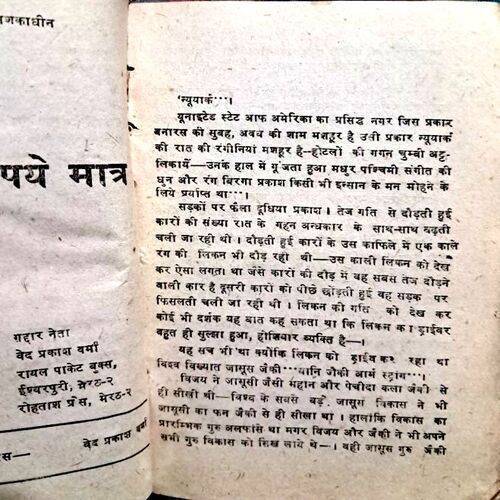 जकाधीन
पये मात्र
गद्दार नेता
वेद प्रकाश वर्मा
रायल पाकेट बुक्स,
ईश्वरपुरी, मेरठ-२
रोहताश प्रेस, मेरठ-२
स— वेद प्रकाश वर्मा
'न्यूयार्क···।
यूनाइटेड स्टेट आफ अमेरिका का प्रसिद्ध नगर जिस प्रकार
बनारस की सुबह, अवध की शाम मशहूर है उसी प्रकार न्यूयार्क
की रात की रंगीनियां मशहूर है—होटलों की गगन चुम्बी अट्ट-
लिकायें—उनके हाल में गूंजता हुआ मधुर पश्चिमी संगीत की
धुन और रंग बिरगा प्रकाश किसी भी इन्सान के मन मोहने के
लिये प्रर्याप्त था···।
सड़कों पर फैला दूधिया प्रकाश। तेज गति से दौड़ती हुई
कारों की संख्या रात के गहन अन्धकार के साथ-साथ बढ़ती
चली जा रही थी। दौड़ती हुई कारों के उस काफिले में एक काले
रंग की लिंकन भी दौड़ रही थी —उस काली लिंकन को देख
कर ऐसा लगता था जैसे कारों की दौड़ में वह सबस तेज दौड़ने
वाली कार है दूसरी कारों को पीछे छोड़ती हुई वह सड़क पर
फिसलती चली जा रही थी। लिंकन की गति को देख कर
कोई भी दर्शक यह बात कह सकता था कि लिंकन का ड्राईवर
बहुत ही सुल्झा हुआ, होशियार व्यक्ति है—।
यह सच भी था क्योंकि लिंकन को ड्राईव कर रहा था
विश्व विख्यात जासूस जैकी···यानि जैकी आर्म स्ट्रांग···।
विजय ने जासूसी जैसी महान और पेचीदा कला जैकी से
ही सीखी थी—विश्व के सबसे बड़े जासूस विकास ने भी
जासूसी का फन जैकी से ही सीखा था। हालांकि विकास का
प्रारम्भिक गुरु अलफांसे था मगर विजय और जैकी ने भी अपने
सभी गुरु विकास को सिख लाये थे—। वही जासूस गुरु जैकी